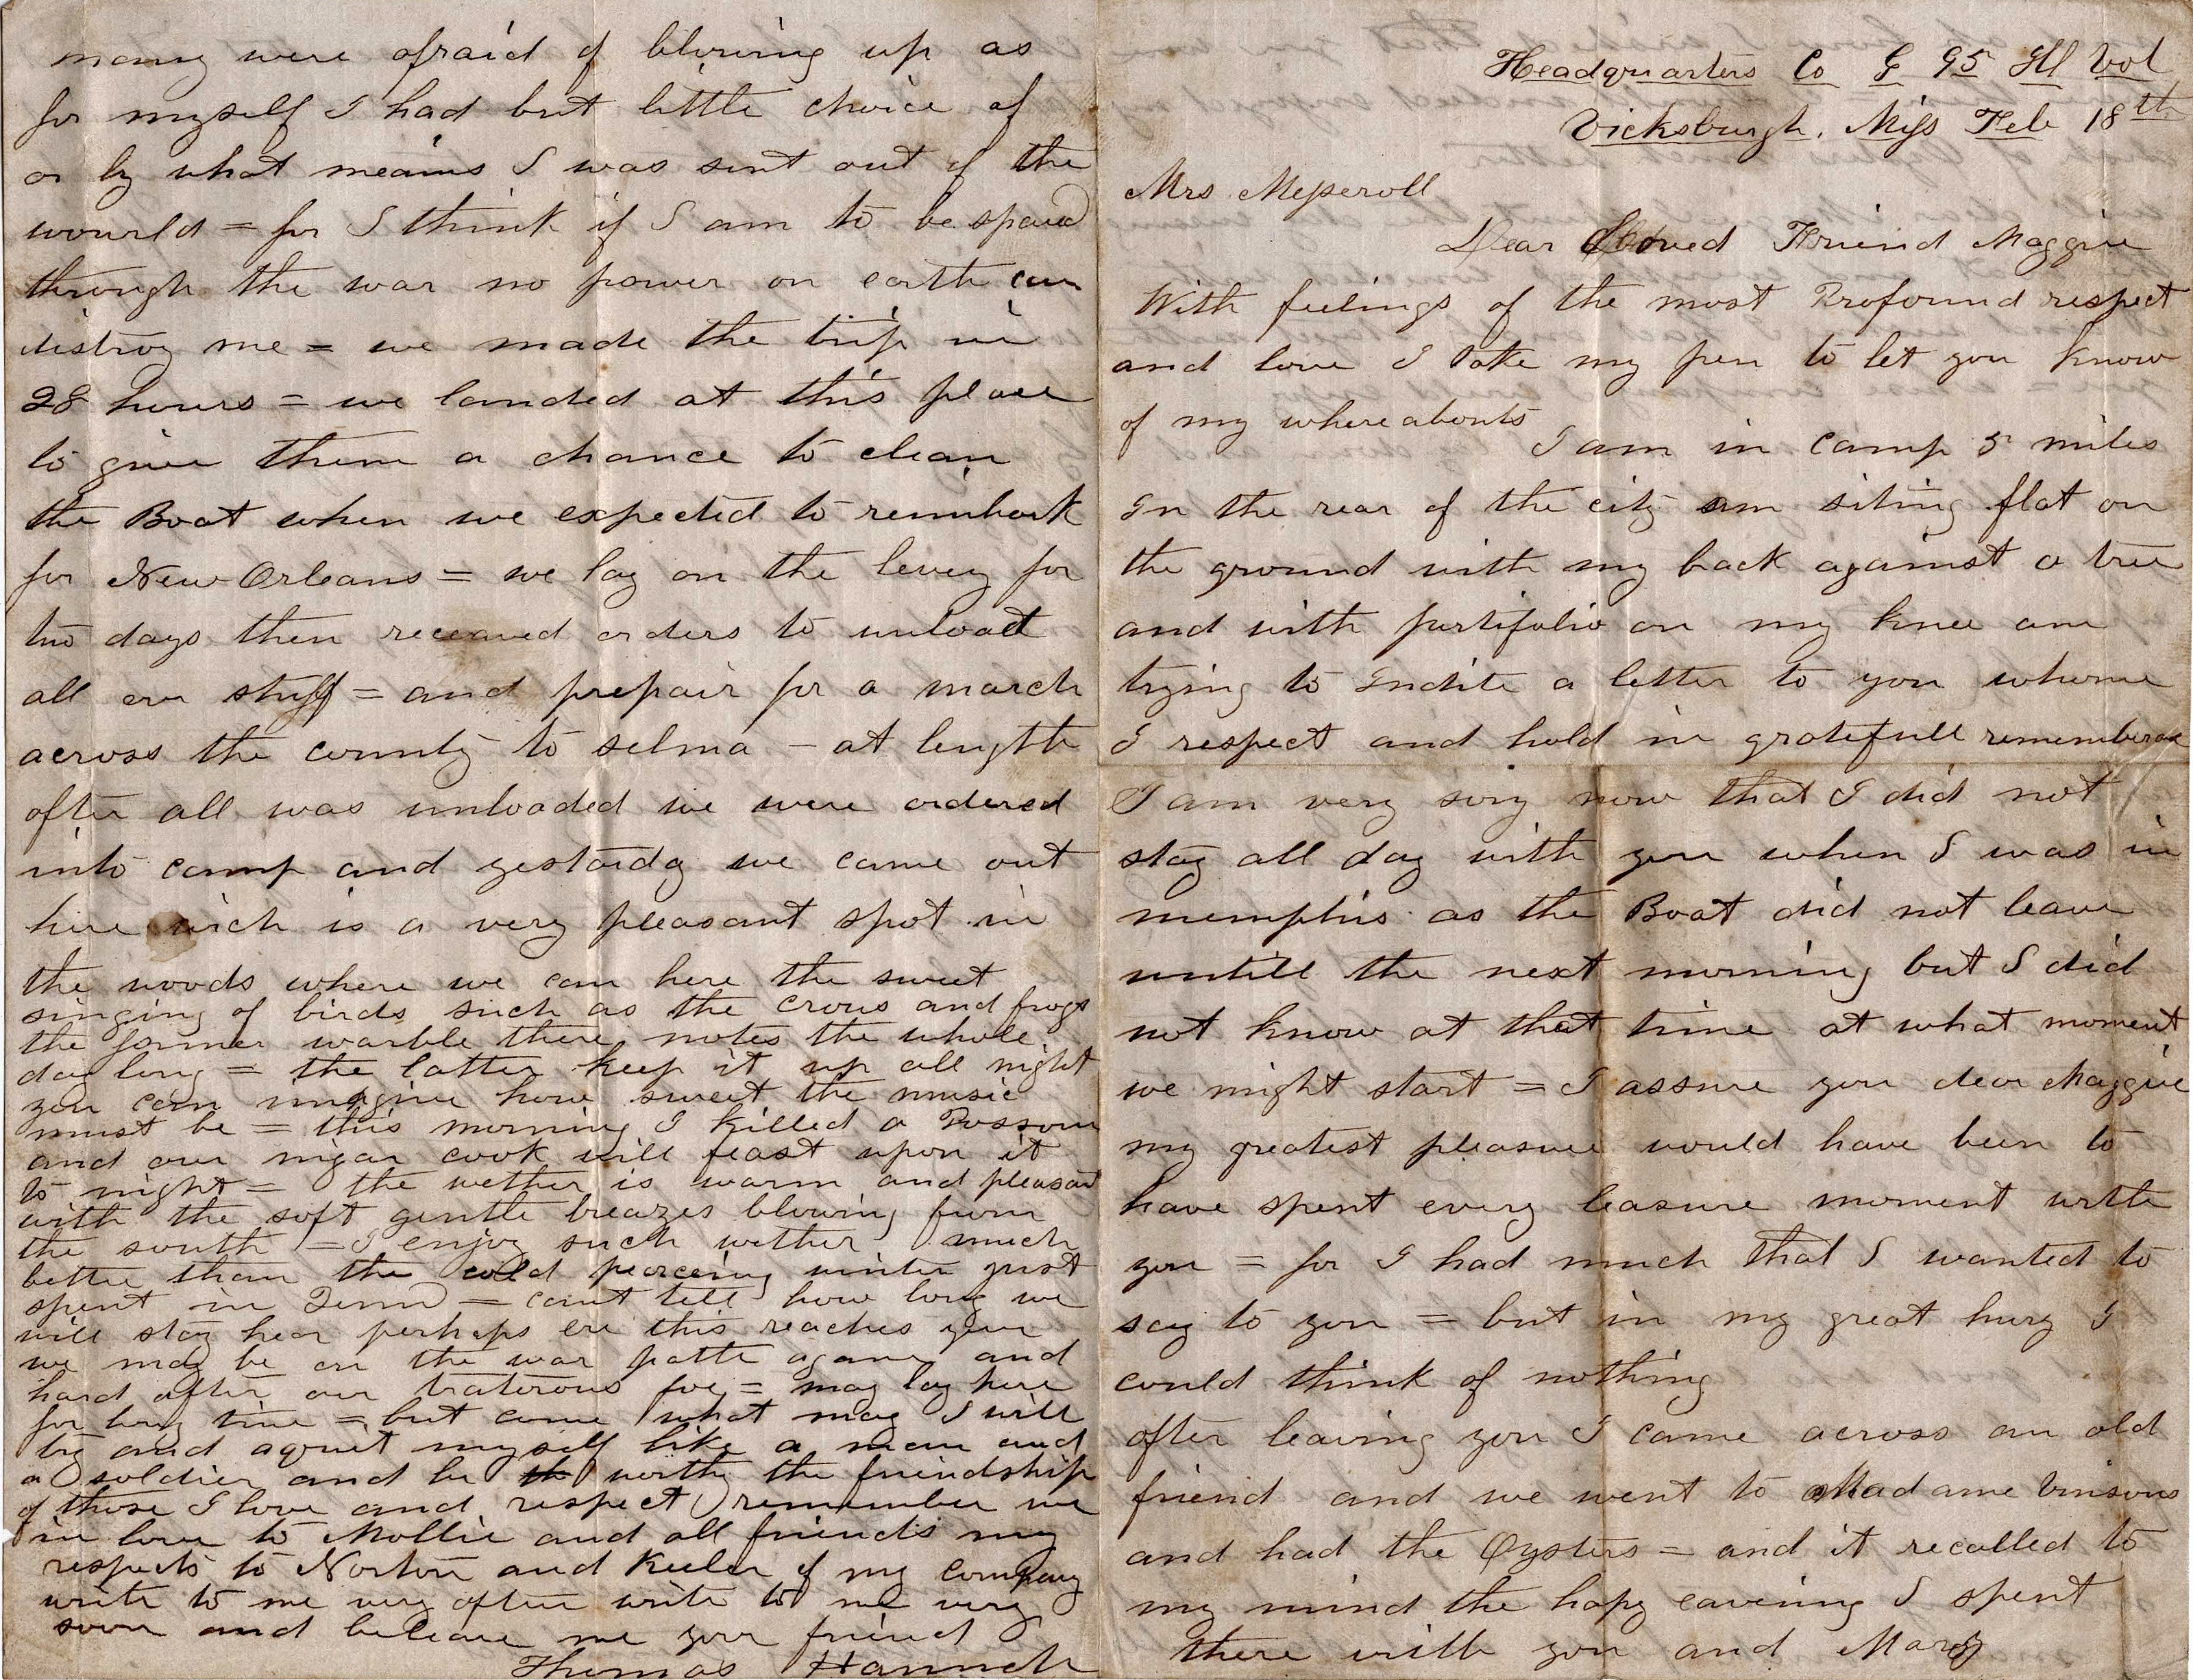 Headquarters Co G 95 Ill Vol
Vicksburgh. Miss Feb 18th
Mrs Messeroll
Dear Loved Friend Maggie
With feelings of the most Profound respect
and love I take my pen to let you know
of my whereabouts
I am in camp 5 miles
In the rear of the city am siting flat on
the ground with my back against a tree
and with portifolio on my knee am
trying to Indite a letter to you whome
I respect and hold in gratefull rememberance
I am very sory now that I did not
stay all day with you when I was in
memphis as the Boat did not leave
untill the next morning but I did
not know at that time at what moment
we might start = I assure you dear Maggie
my greatest pleasure would have been to
have spent every leasure moment with
you = for I had much that I wanted to
say to you = but in my great hury I
could think of nothing
after leaving you I came across an old
friend and we went to Madame Vinsons
and had the Oysters = and it recalled to
my mind the hapy eavening I spent
there with you and Mary
many were afraid of blowing up as
for myself I had but little choice of
or by what means I was sent out of the
wourld = for I think if I am to be spaird
through the war no power on earth can
distroy me = we made the trip in
28 hours = we landed at this place
to give them a chance to clean
the Boat when we expected to reimbark
for New Orleans = we lay on the levey for
two days then receaved orders to unload
all our stuff = and prepair for a march
across the county to selma - at length
after all was unloaded we were ordered
into camp and yestarday we came out
here wich is a very pleasant spot in
the woods where we can here the sweet
singing of birds such as the crows and frogs
the former warble there notes the whole
day long = the latter keep it up all night
you can imagine how sweet the music
must be = this morning I killed a Possom
and our nigar cook will feast upon it
to night = the wether is warm and pleasant
with the soft gentle breazes blowing furm
the south = I enjoy such wether much
better than the cold pearceing winter just
spent in Tenn = cant tell how long we
will stay hear perhaps ere this reaches you
we may be on the war path agane and
hard after our traterous foe = may lay here
for long time = but come what may I will
try and aquit myself like a man and
a soldier and be worthy the friendship
of those I love and respect remember me
in love to Mollie and all friends my
respects to Norton and Keeler of my company
write to me very often write to me very
soon and beleave me your friend
Thomas Hannah